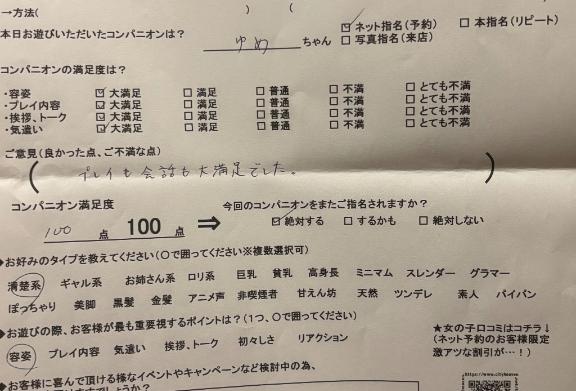 →方法( ) (
本日お遊びいただいたコンパニオンは? ゆめ ちゃん ☑ ネット指名(予約) □ 本指名(リピート)
□ 写真指名(来店)
コンパニオンの満足度は?
・容姿 ☑ 大満足 □ 満足 □ 普通 □ 不満 □ とても不満
・プレイ内容 ☑ 大満足 □ 満足 □ 普通 □ 不満 □ とても不満
・挨拶、トーク ☑ 大満足 □ 満足 □ 普通 □ 不満 □ とても不満
・気遣い ☑ 大満足 □ 満足 □ 普通 □ 不満 □ とても不満
ご意見(良かった点、ご不満な点)
( プレイも会話も大満足でした。 )
コンパニオン満足度 今回のコンパニオンをまたご指名されますか?
100 点 100 点 ⇒ ☑ 絶対する □ するかも □ 絶対しない
◆お好みのタイプを教えてください(○で囲ってください※複数選択可)
清楚系 ギャル系 お姉さん系 ロリ系 巨乳 貧乳 高身長 ミニマム スレンダー グラマー
ぽっちゃり 美脚 黒髪 金髪 アニメ声 非喫煙者 甘えん坊 天然 ツンデレ 素人 パイパン
◆お遊びの際、お客様が最も重要視するポイントは?(1つ、○で囲ってください)
容姿 プレイ内容 気遣い 挨拶、トーク 初々しさ リアクション
★女の子口コミはコチラ↓
(ネット予約のお客様限定
激アツな割引が…!)
◆お客様に喜んで頂ける様なイベントやキャンペーンなど検討中の為、
https://www.cityheaven